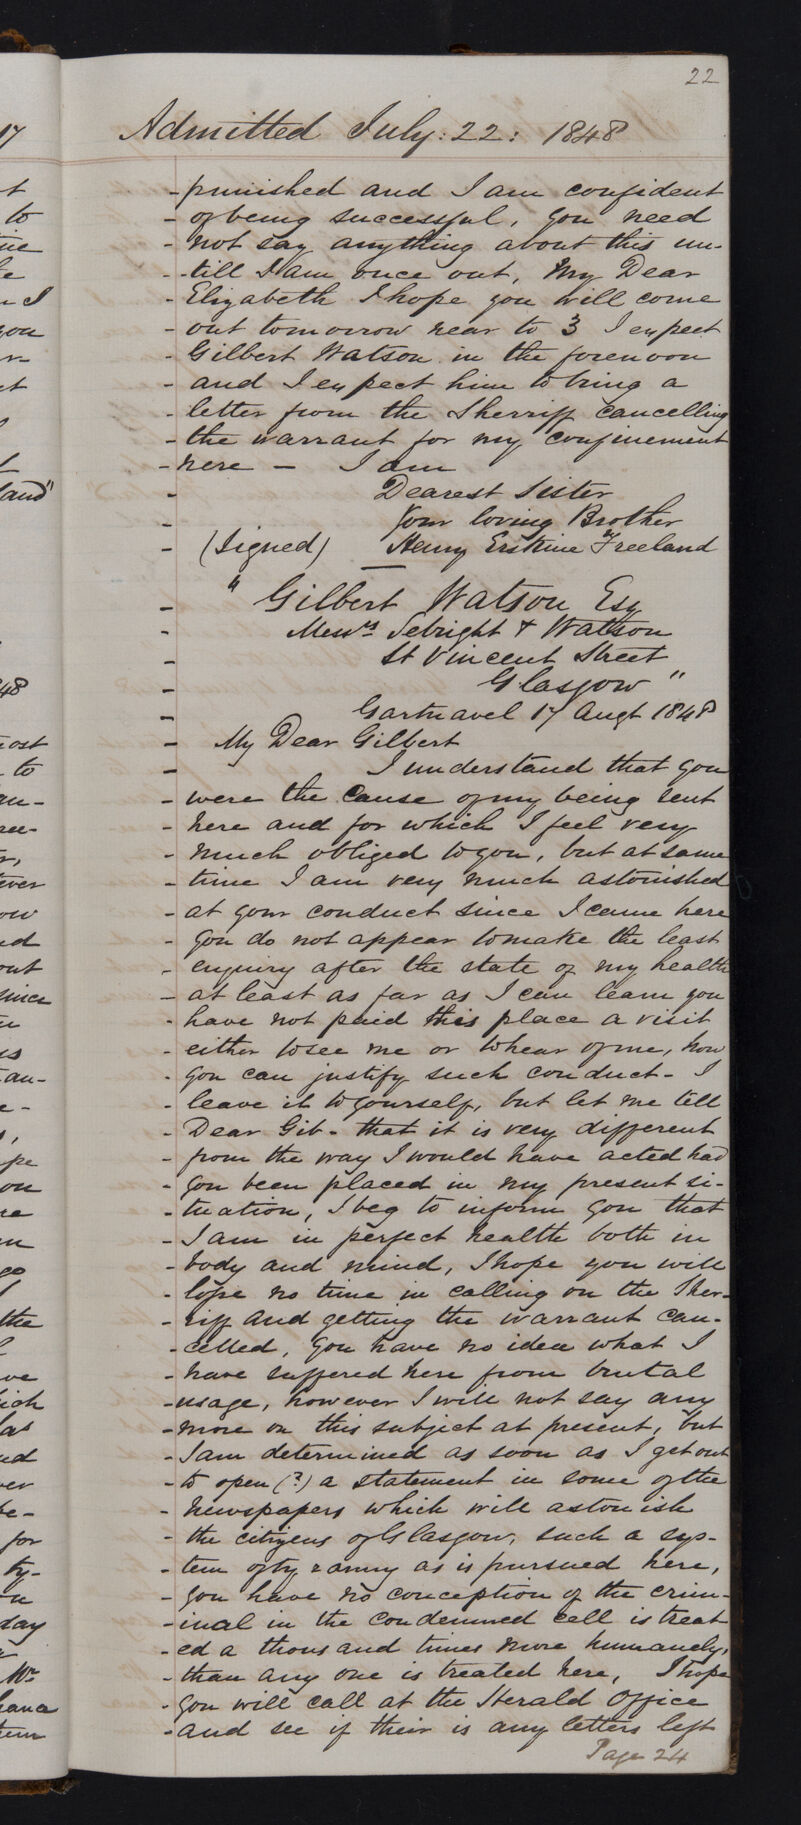 22
Admitted July: 22: 1848
- punished and I am confident
- of being successful, you need
- not say anything about this un-
- till I am once out, My Dear
- Elizabeth I hope you will come
- out tomorrow near to 3 I expect
- Gilbert Watson in the forenoon
- and I expect him to bring a
- letter from the Sherriff cancelling
- the warrant for my confinement
- here - I am
- Dearest Sister
- Your loving Brother
- (Signed) Henry Erskine Freeland
- " Gilbert Watson Esq
- Messrs Sebright & Watson
- St Vincent Street
- Glasgow "
- Gartnavel 17 Augt 1848
- My Dear Gilbert
- I understand that you
- were the cause of my being sent
- here and for which I feel very
- much obliged to you, but at same
- time I am very much astonished
- at your conduct since I came here
- you do not appear to make the least
- enquiry after the state of my health
- at least as far as I can learn you
- have not paid this place a visit
- either to see me or to hear of me, how
- you can justify such conduct - I
- leave it to yourself, but let me tell
- Dear Gib - that it is very different
- from the way I would have acted had
- you been placed in my present si-
- tuation, I beg to inform you that
- I am in perfect health both in
- body and mind, I hope you will
- lose no time in calling on the Sher-
- riff and getting the warrant can-
- celled, you have no idea what I
- have suffered here from brutal
- usage, however I will not say any
- more on this subject at present, but
- I am determined as soon as I get out
- to open (?) a statement in some of the
- newspapers which will astonish
- the citizens of Glasgow, such a sys-
- tem of tyranny as is pursued here,
- you have no conception of the crim-
- inal in the condemned cell is treat
- ed a thousand times more humanely,
- than any one is treated here, I hope
- you will call at the Herald Office
- and see if their is any letters left
Page 24